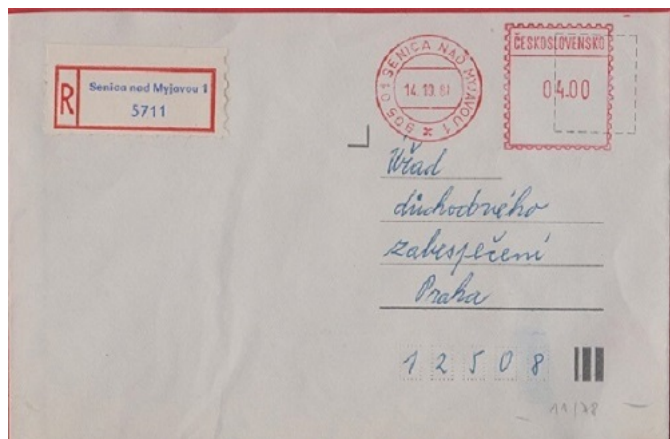 Senica nad Myjavou 1
R
5711
905 01 SENICA NAD MYJAVOU 1
ČESKOSLOVENSKO
04.00
Úřad
důchodového
zabespěčení
Praha
12508